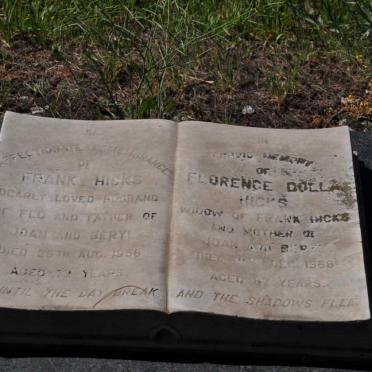 IN
AFFECTIONATE REMEMBRANCE
OF
FRANK HICKS
DEARLY LOVED HUSBAND
OF FLO AND FATHER OF
JOAN AND BERYL
DIED 25TH AUG. 1956
AGED YEARS
UNTIL THE DAY BREAK
IN
LOVING MEMORY
OF
FLORENCE DOLLA
HICKS
WIDOW OF FRANK HICKS
AND MOTHER OF
JOAN AND BERYL
1968
AGED YEARS
AND THE SHADOWS FLEE